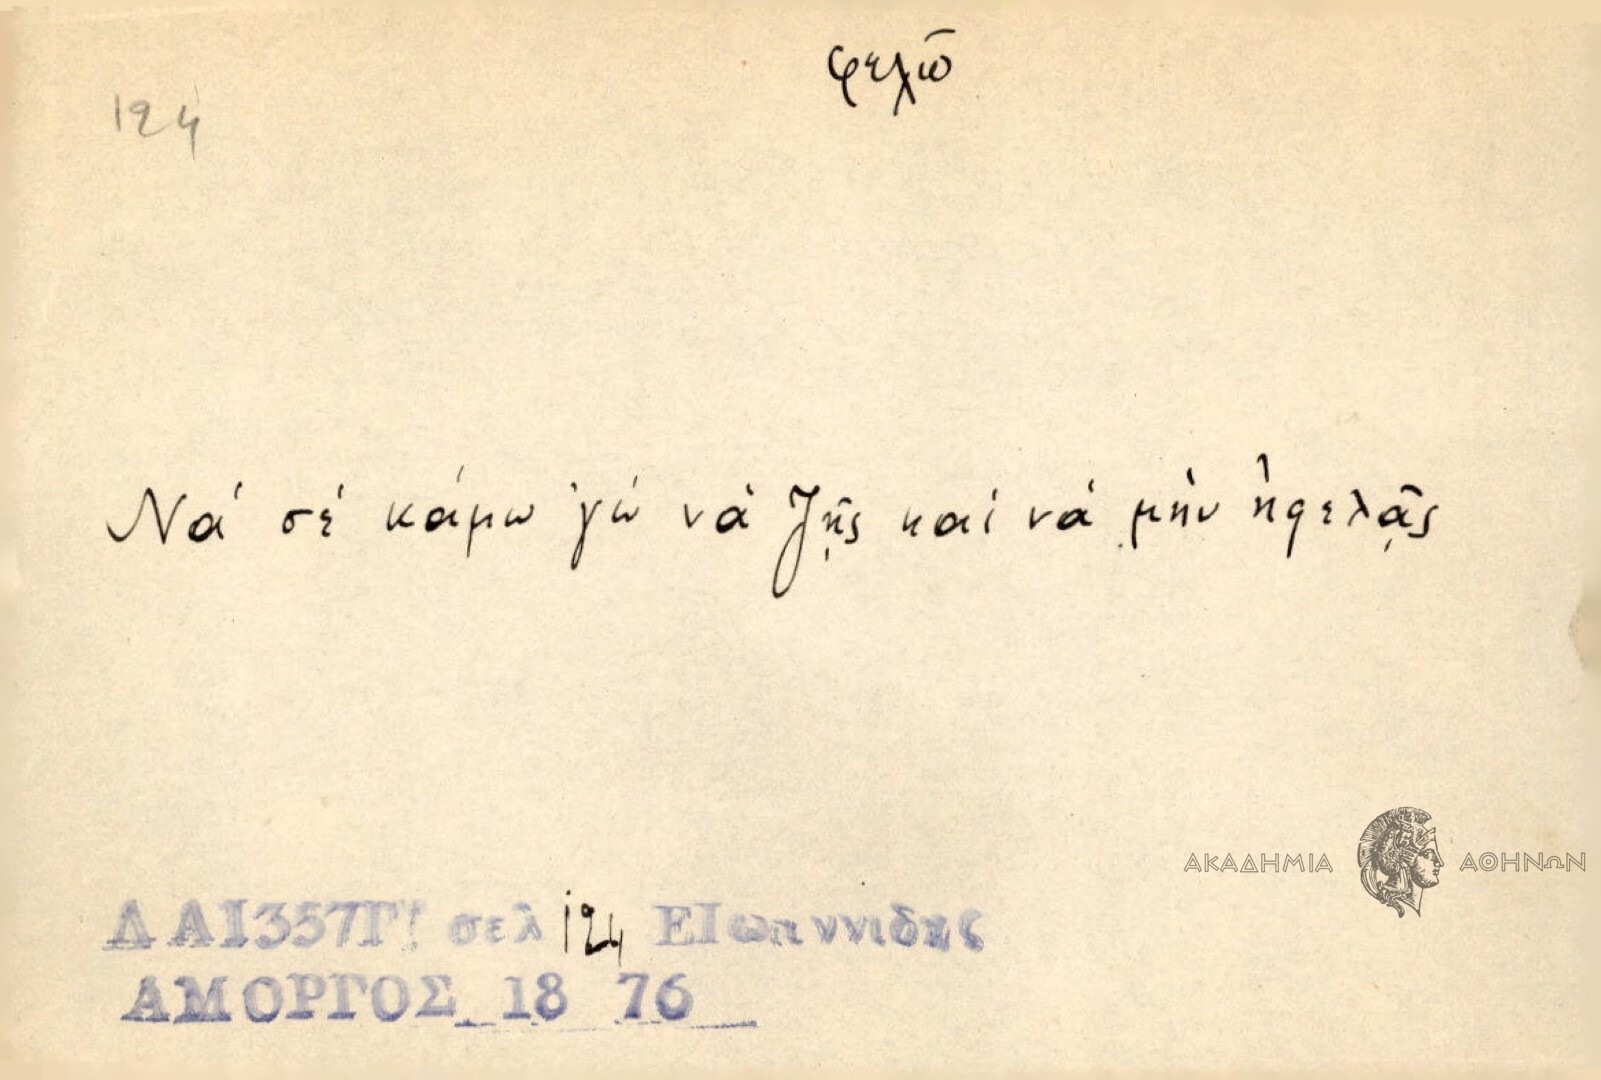 φελῶ
124
Νά σέ κάμω 'γώ νὰ ζῇς καί νά μὴν ἠφελᾷς
ΑΚΑΔΗΜΙΑ ΑΘΗΝΩΝ
Λ ΑΙ357Γ! σελ 124 ΕΙωαννιδης
ΑΜΟΡΓΟΣ 18 76